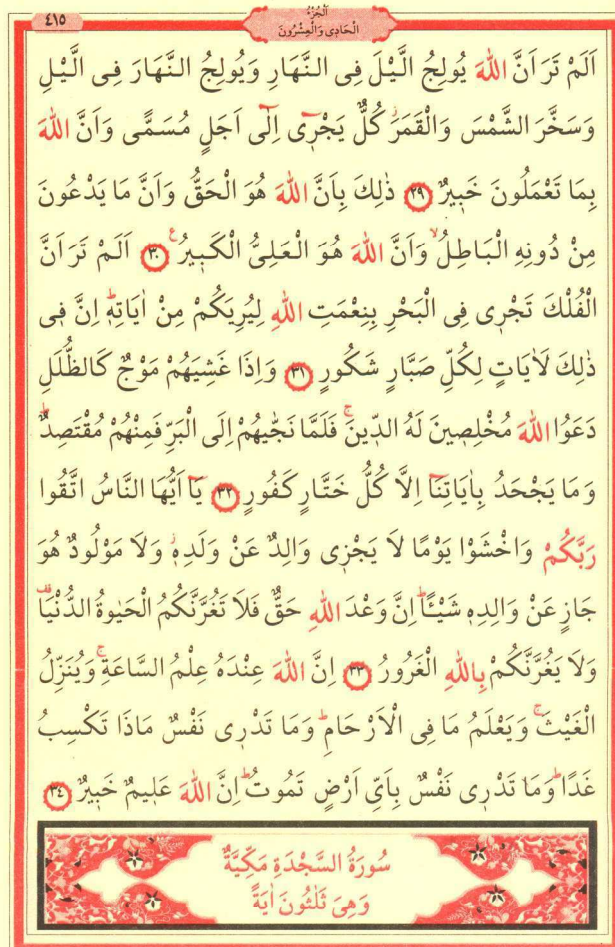 ٤١٥
اَلْجُزْءُ
الْحَادِى وَالْعِشْرُونَ
اَلَمْ تَرَ اَنَّ اللّٰهَ يُولِجُ الَّيْلَ فِى النَّهَارِ وَيُولِجُ النَّهَارَ فِى الَّيْلِ
وَسَخَّرَ الشَّمْسَ وَالْقَمَرَۘ كُلٌّ يَجْرٖٓى اِلٰٓى اَجَلٍ مُسَمًّى وَاَنَّ اللّٰهَ
بِمَا تَعْمَلُونَ خَبٖيرٌ ﴿٢٩﴾ ذٰلِكَ بِاَنَّ اللّٰهَ هُوَ الْحَقُّ وَاَنَّ مَا يَدْعُونَ
مِنْ دُونِهِ الْبَاطِلُۙ وَاَنَّ اللّٰهَ هُوَ الْعَلِىُّ الْكَبٖيرُ ࣖ ﴿٣٠﴾ اَلَمْ تَرَ اَنَّ
الْفُلْكَ تَجْرٖى فِى الْبَحْرِ بِنِعْمَتِ اللّٰهِ لِيُرِيَكُمْ مِنْ اٰيَاتِهٖؕ اِنَّ فٖى
ذٰلِكَ لَاٰيَاتٍ لِكُلِّ صَبَّارٍ شَكُورٍ ﴿٣١﴾ وَاِذَا غَشِيَهُمْ مَوْجٌ كَالظُّلَلِ
دَعَوُا اللّٰهَ مُخْلِصٖينَ لَهُ الدّٖينَۚ فَلَمَّا نَجّٰيهُمْ اِلَى الْبَرِّ فَمِنْهُمْ مُقْتَصِدٌؕ
وَمَا يَجْحَدُ بِاٰيَاتِنَٓا اِلَّا كُلُّ خَتَّارٍ كَفُورٍ ﴿٣٢﴾ يَٓا اَيُّهَا النَّاسُ اتَّقُوا
رَبَّكُمْ وَاخْشَوْا يَوْمًا لَا يَجْزٖى وَالِدٌ عَنْ وَلَدِهٖؗ وَلَا مَوْلُودٌ هُوَ
جَازٍ عَنْ وَالِدِهٖ شَيْـًٔاؕ اِنَّ وَعْدَ اللّٰهِ حَقٌّ فَلَا تَغُرَّنَّكُمُ الْحَيٰوةُ الدُّنْيَاࣞ
وَلَا يَغُرَّنَّكُمْ بِاللّٰهِ الْغَرُورُ ﴿٣٣﴾ اِنَّ اللّٰهَ عِنْدَهُ عِلْمُ السَّاعَةِۚ وَيُنَزِّلُ
الْغَيْثَۚ وَيَعْلَمُ مَا فِى الْاَرْحَامِؕ وَمَا تَدْرٖى نَفْسٌ مَاذَا تَكْسِبُ
غَدًاؕ وَمَا تَدْرٖى نَفْسٌ بِاَىِّ اَرْضٍ تَمُوتُؕ اِنَّ اللّٰهَ عَلٖيمٌ خَبٖيرٌ ﴿٣٤﴾
سُورَةُ السَّجْدَةِ مَكِّيَّةٌ
وَهِىَ ثَلٰثُونَ اٰيَةً